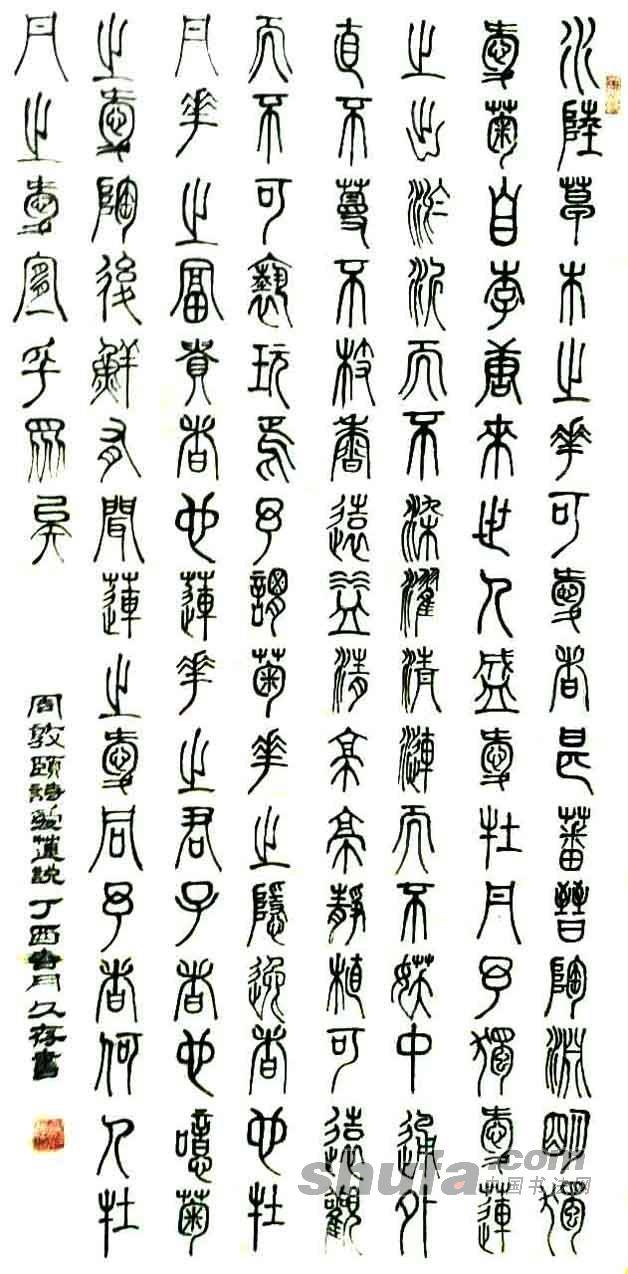 水陸草木之華可愛者甚蕃晉陶淵明獨
愛菊自李唐來世人盛愛牡丹予獨愛蓮
之出淤泥而不染濯清漣而不妖中通外
直不蔓不枝香遠益清亭亭靜植可遠觀
而不可褻玩焉予謂菊華之隱逸者也牡
丹華之富貴者也蓮華之君子者也噫菊
之愛陶後鮮有聞蓮之愛同予者何人牡
丹之愛宜乎眾矣
周敦頤詩愛蓮說丁酉春月久存書
shufa.com
中国书法网